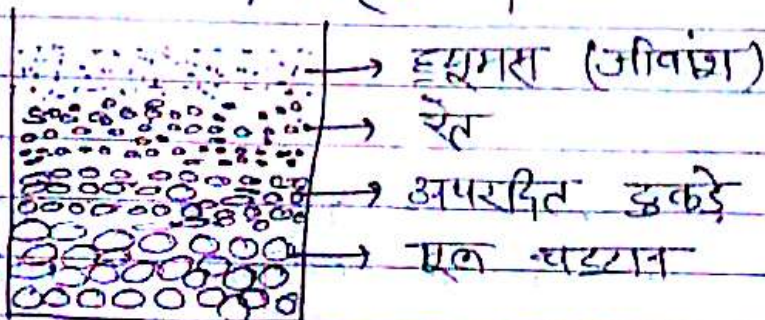 ह्यूमस (जीवांश)
रेत
अपरदित टुकड़े
मूल चट्टान